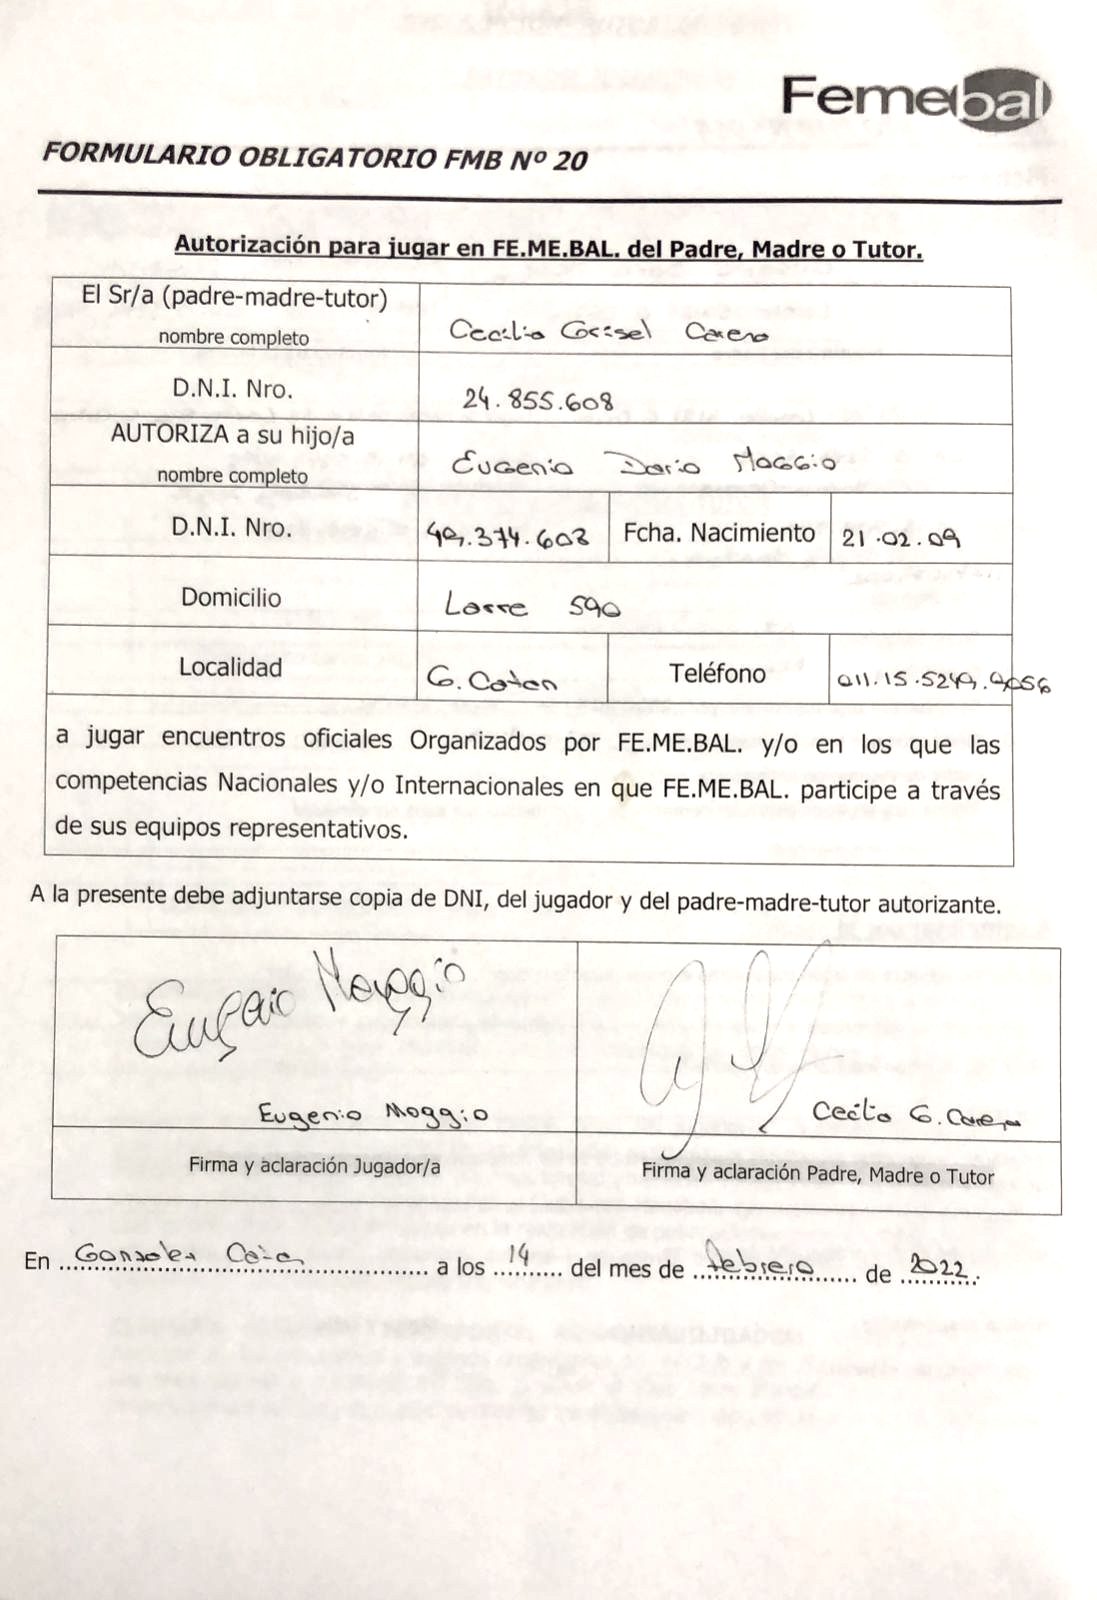 Femebal
FORMULARIO OBLIGATORIO FMB Nº 20
Autorización para jugar en FE.ME.BAL. del Padre, Madre o Tutor.
El Sr/a (padre-madre-tutor)
nombre completo
Cecilia Grisel Carera
D.N.I. Nro.
24.855.608
AUTORIZA a su hijo/a
nombre completo
Eugenio Dario Moggio
D.N.I. Nro.
49.374.608
Fcha. Nacimiento
21.02.09
Domicilio
Larre 590
Localidad
G. Catan
Teléfono
011.15.5249.9056
a jugar encuentros oficiales Organizados por FE.ME.BAL. y/o en los que las
competencias Nacionales y/o Internacionales en que FE.ME.BAL. participe a través
de sus equipos representativos.
A la presente debe adjuntarse copia de DNI, del jugador y del padre-madre-tutor autorizante.
Eugenio Moggio
Eugenio Moggio
Cecilia G. Carera
Firma y aclaración Jugador/a
Firma y aclaración Padre, Madre o Tutor
En Gonzalez Catan a los 14 del mes de febrero de 2022.